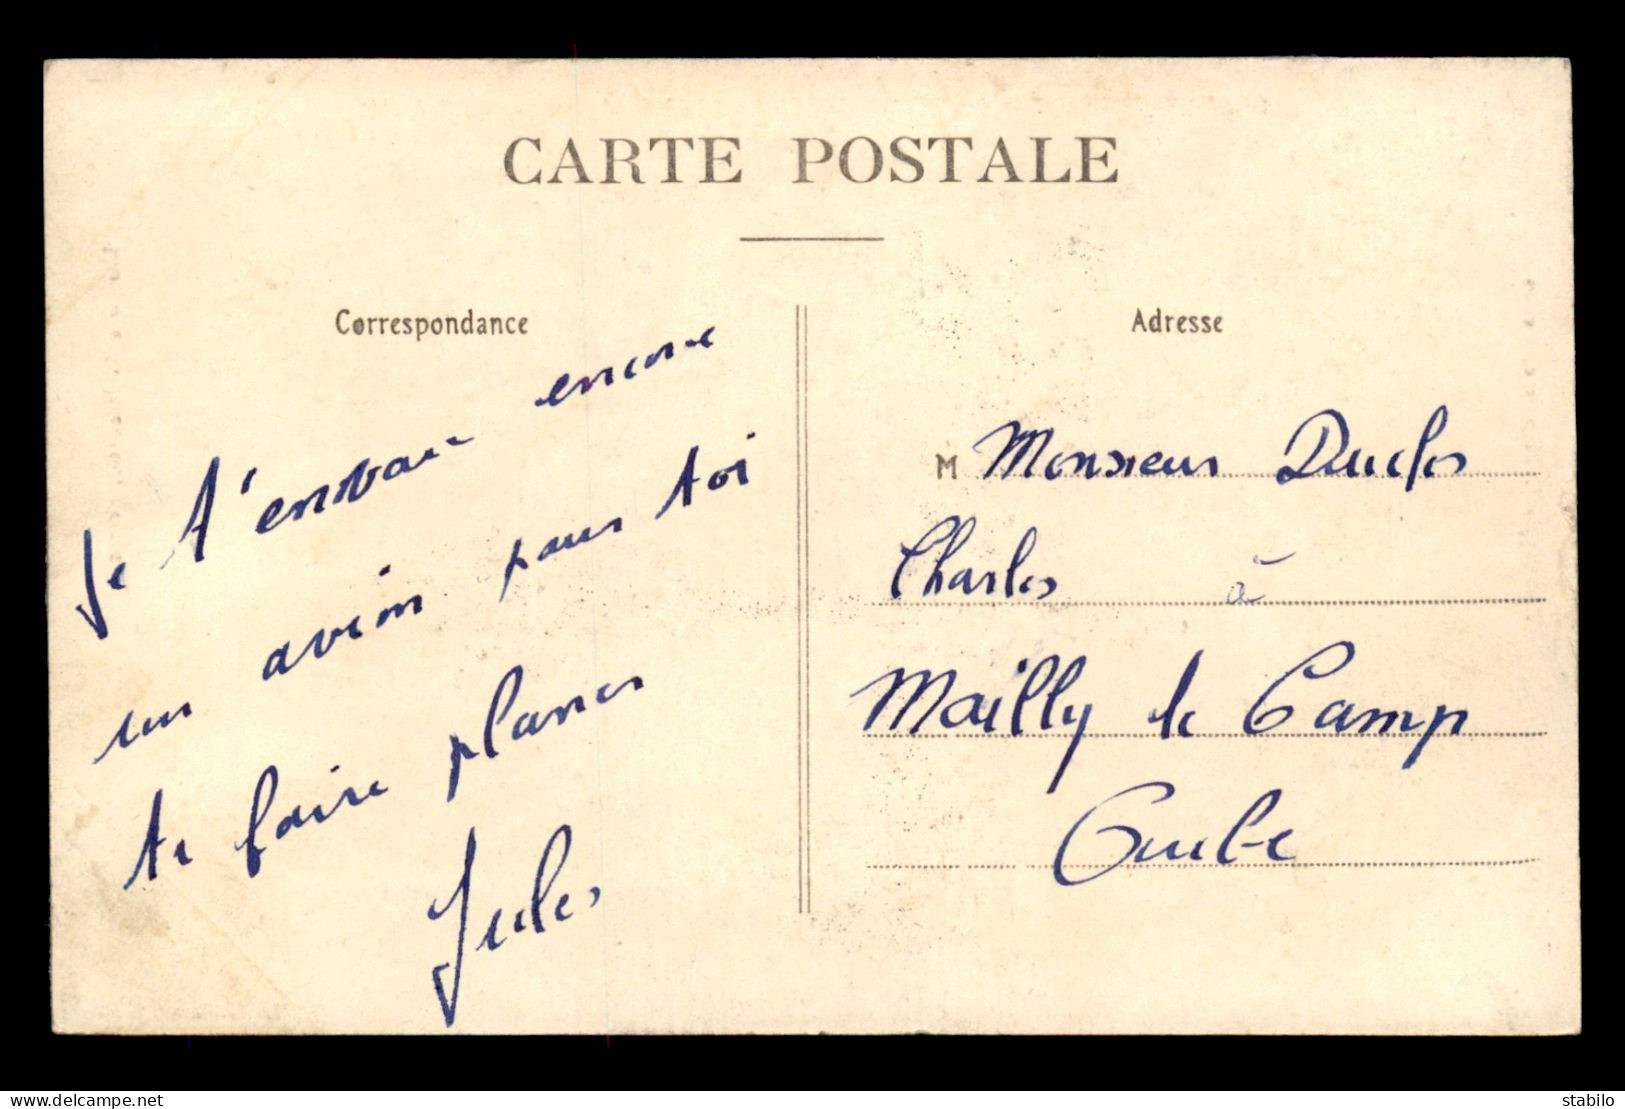 CARTE POSTALE
Correspondance
Je t'envoie encore
un avion pour toi
te faire planer
Jules
Adresse
M Monsieur Duclos
Charles à
Mailly le Camp
Aube
www.delcampe.net
stabilo